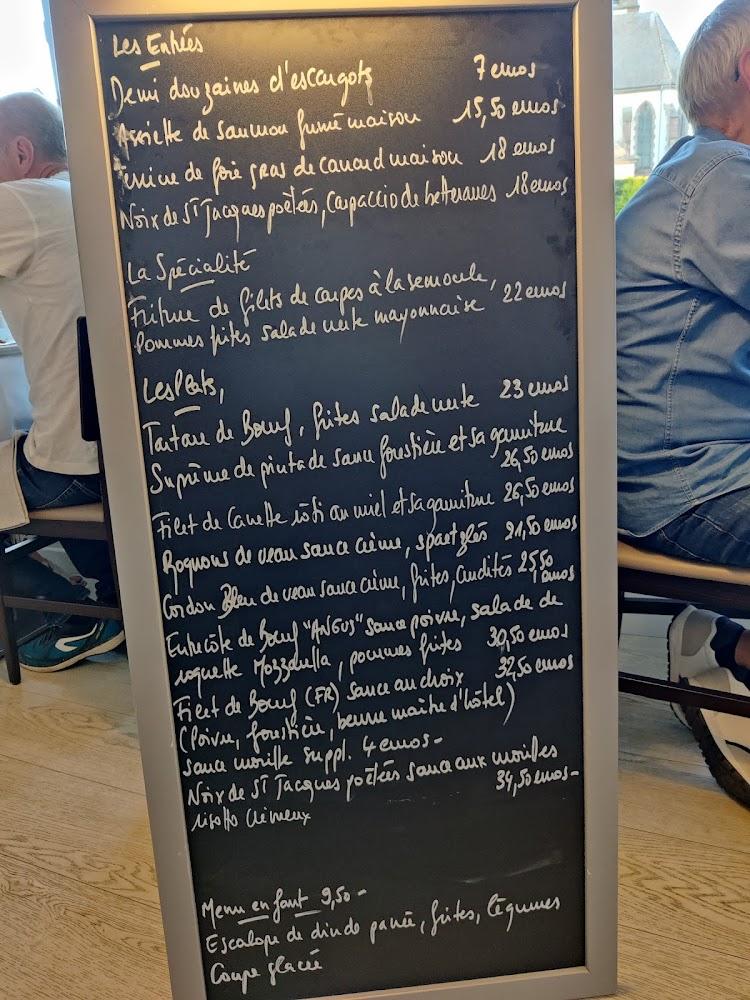 Les Entrées
Demi douzaines d'escargots 7 euros
Assiette de saumon fumé maison 15,50 euros
Terrine de foie gras de canard maison 18 euros
Noix de ST Jacques poêlées, Carpaccio de betteraves 18 euros
La Spécialité
Friture de filets de carpes à la semoule,
pommes frites salade verte mayonnaise 22 euros
Les Plats,
Tartare de Bœuf, frites salade verte 23 euros
Suprême de pintade sauce forestière et sa garniture
26,50 euros
Filet de Canette rôti au miel et sa garniture 26,50 euros
Rognons de veau sauce crème, spaetzlés 21,50 euros
Cordon Bleu de veau sauce crème, frites, crudités 25,50
euros
Entrecôte de Bœuf "ANGUS" sauce poivre, salade de
roquette Mozzarella, pommes frites 30,50 euros
Filet de Bœuf (FR) sauce au choix 32,50 euros
(Poivre, forestière, beurre maître d'hôtel)
Sauce morille suppl. 4 euros-
Noix de ST Jacques poêlées sauce aux morilles
34,50 euros-
risotto crémeux
Menu enfant 9,50-
Escalope de dinde panée, frites, légumes
Coupe glacée